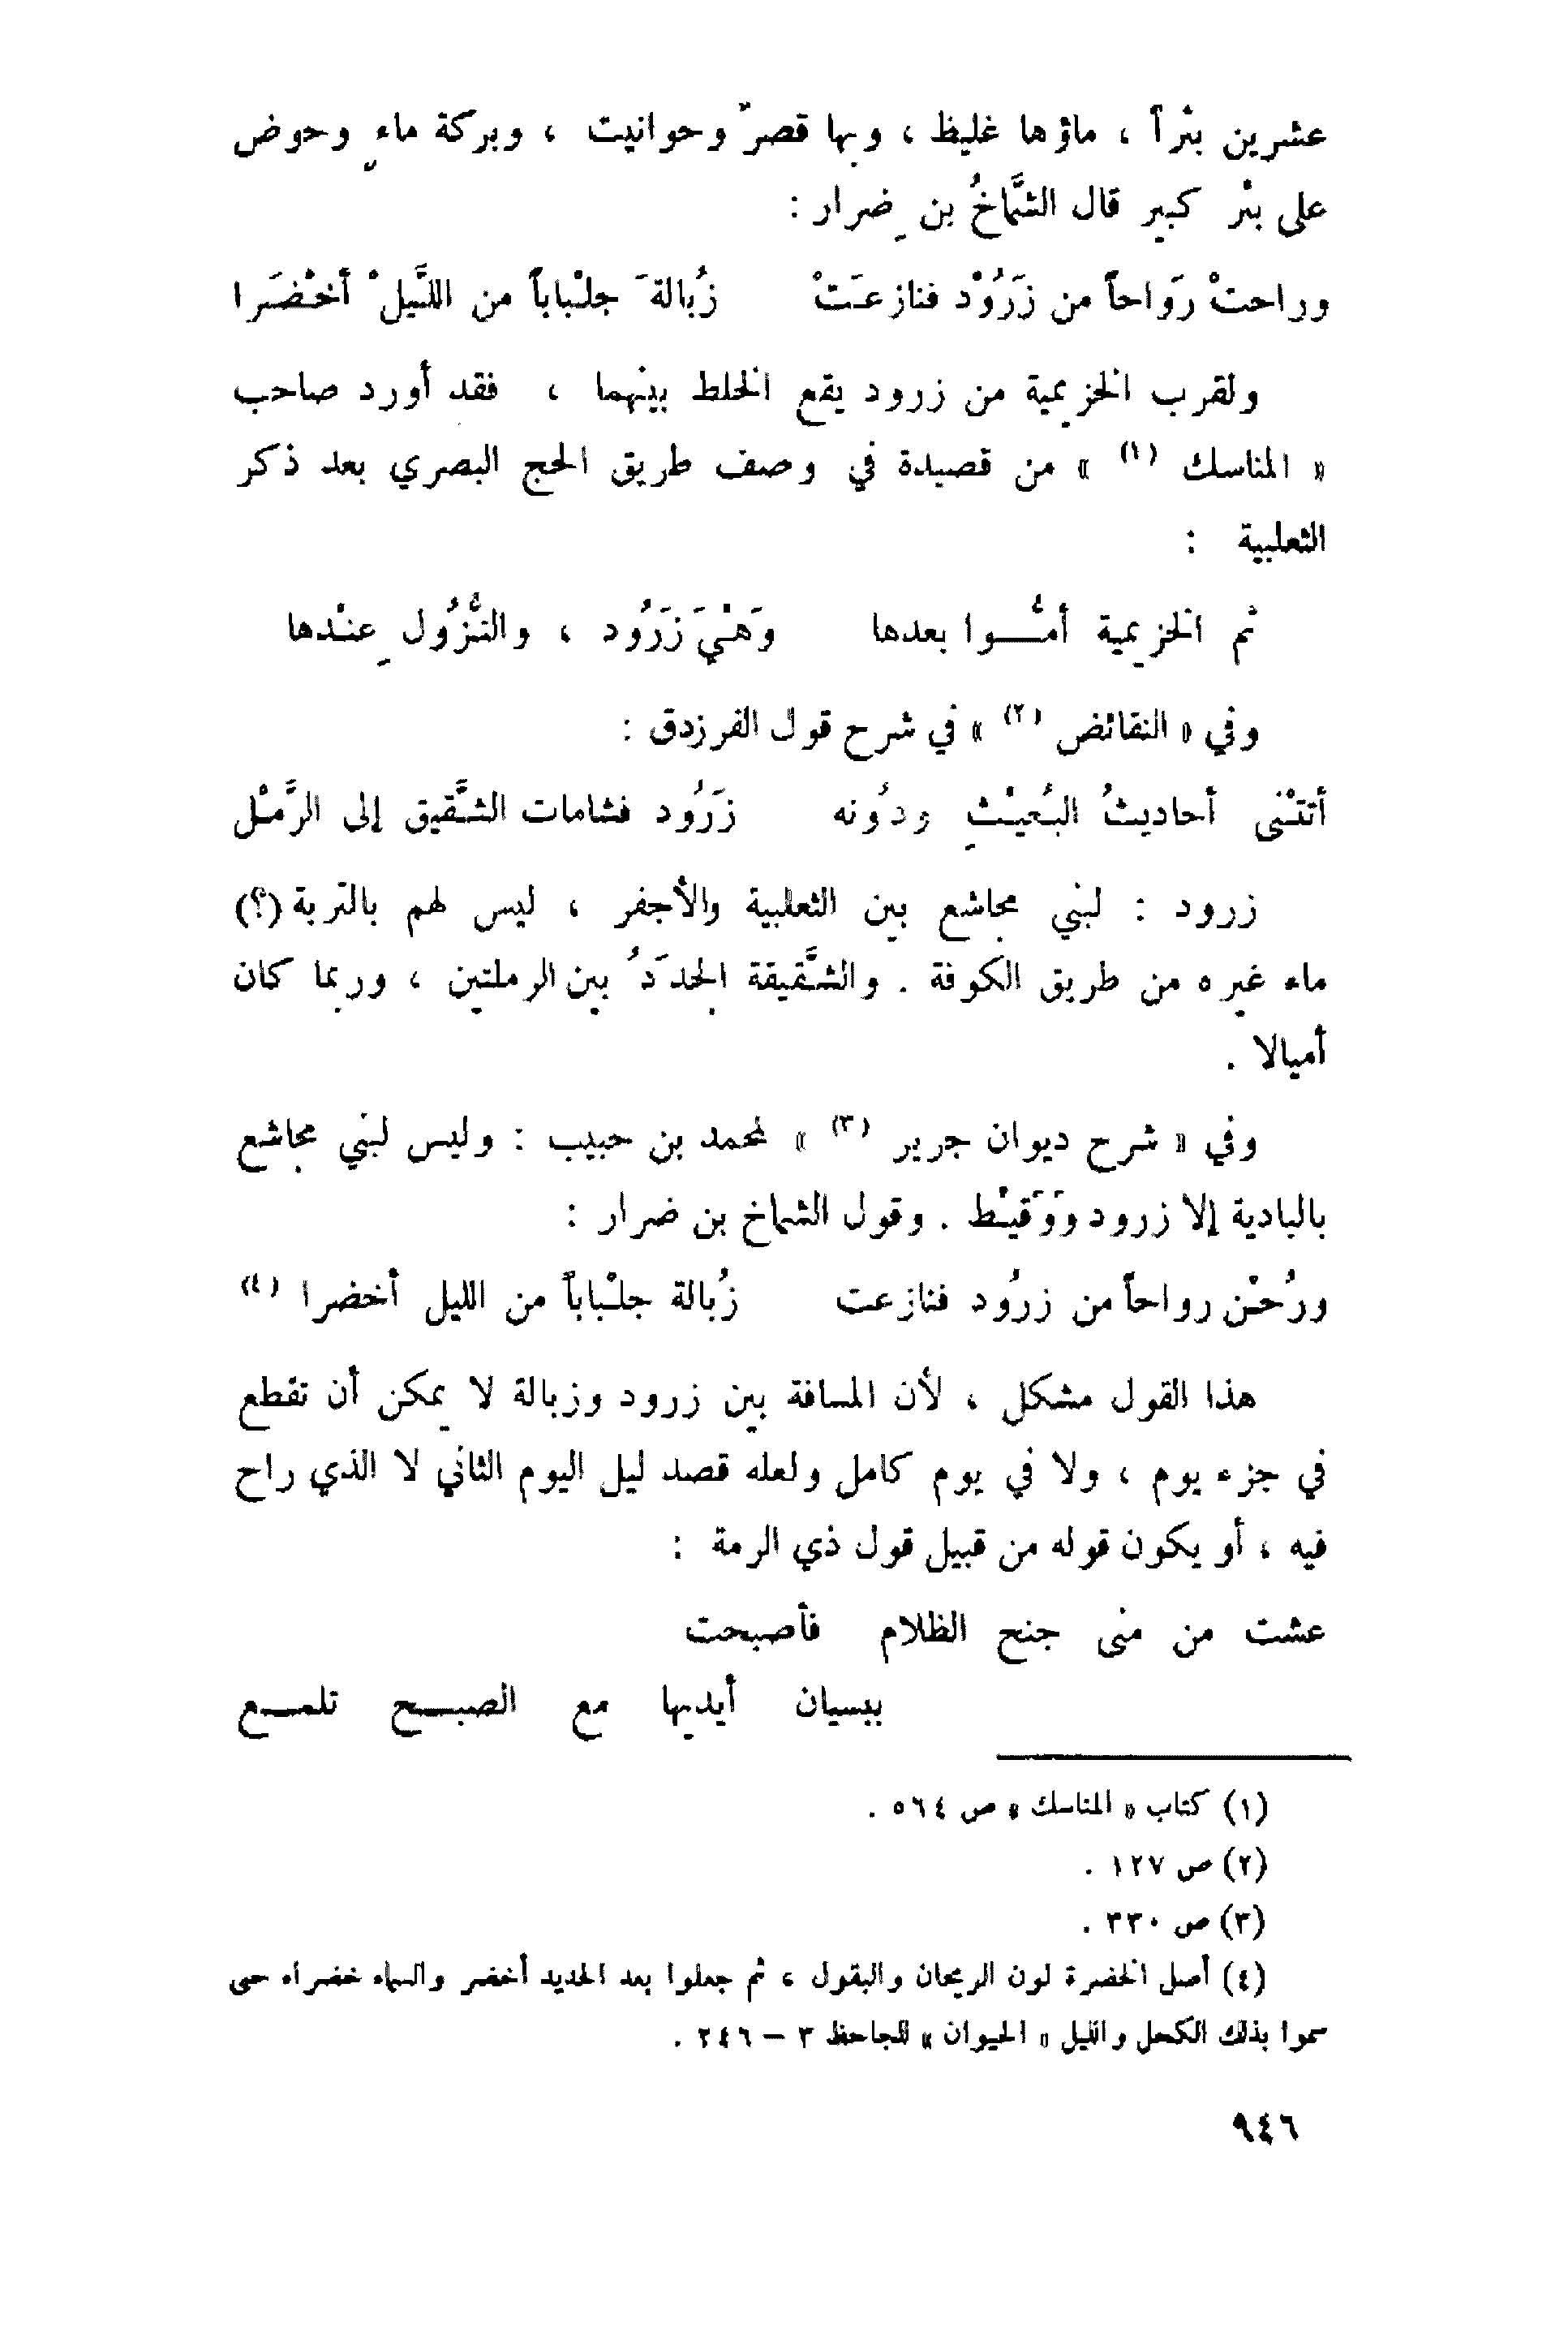 عشرين بئراً ، ماؤها غليظ ، وبها قصرٌ وحوانيت ، وبركة ماءٍ وحوض
على بئر كبير قال الشَّماخُ بن ضِرار :
وراحتْ رَواحاً من زَرُوْد فنازعَتْ زُبالةَ جلْباباً من اللَّيلْ أخْضَرا
ولقرب الخزيمية من زرود يقع الخلط بينهما ، فقد أورد صاحب
« المناسك (١) » من قصيدة في وصف طريق الحج البصري بعد ذكر
الثعلبية :
ثم الخزيمية أمُّـوا بعدها وَهْيَ زَرُود ، والنُّزُول عِنْدها
وفي « النقائض (٢) » في شرح قول الفرزدق :
أتتْنى أحاديثُ البُعيْثِ ودُونه زَرُود فشامات الشَّقيق إلى الرَّمْل
زرود : لبني مجاشع بين الثعلبية والأجفر ، ليس لهم بالتربة (؟)
ماء غيره من طريق الكوفة . والشَّقيقة الجدَدُ بين الرملتين ، وربما كان
أميالا .
وفي « شرح ديوان جرير (٣) » لمحمد بن حبيب : وليس لبني مجاشع
بالبادية إلا زرود وَوَقيْط . وقول الشماخ بن ضرار :
ورُحْن رواحاً من زرُود فنازعت زُبالة جلْباباً من الليل أخضرا (٤)
هذا القول مشكل ، لأن المسافة بين زرود وزبالة لا يمكن أن تقطع
في جزء يوم ، ولا في يوم كامل ولعله قصد ليل اليوم الثاني لا الذي راح
فيه ، أو يكون قوله من قبيل قول ذي الرمة :
عشت من منى جنح الظلام فأصبحت
ببسيان أيديها مع الصبـح تلمـع
(١) كتاب « المناسك » ص ٥٦٤ .
(٢) ص ١٢٧ .
(٣) ص ٣٣٠ .
(٤) أصل الخضرة لون الريحان والبقول ، ثم جعلوا بعد الحديد أخضر والسماء خضراء حى
سموا بذلك الكحل والليل « الحيوان » للجاحظ ٣ – ٢٤٦ .
٩٤٦